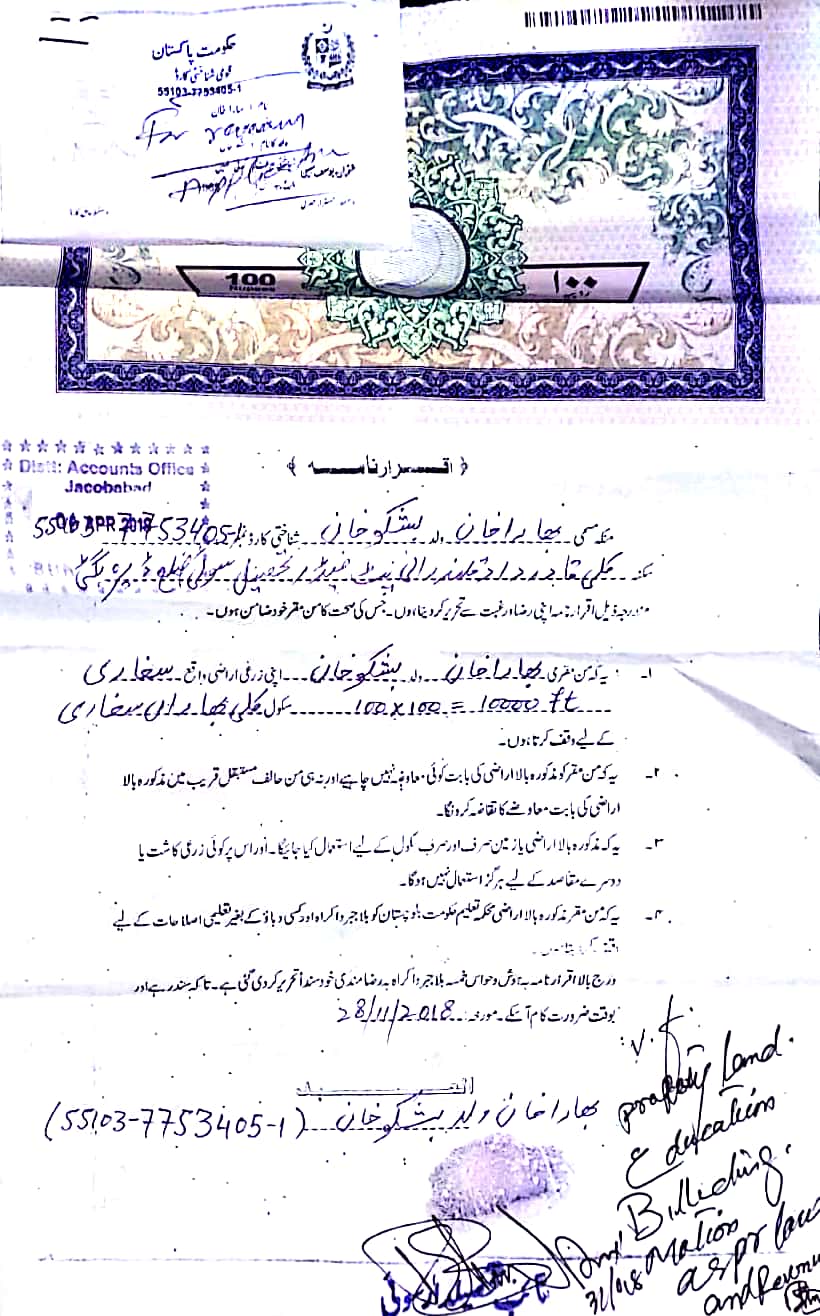 حکومت پاکستان
قومی شناختی کارڈ
55103-7753405-1
For
100
Rupees
۱۰۰
روپیہ
Distt: Accounts Office
Jacobabad
APR 2018
﴿ اقرارنامہ ﴾
منکہ مسمی بھاراخان ولد بشکوخان شناختی کارڈ نمبر 55103-7753405-1
سکنہ کلی قادرداد قلندرانی تحصیل سوئی ضلع ڈیرہ بگٹی
مندرجہ ذیل اقرارنامہ اپنی رضا و رغبت سے تحریر کر دیتا ہوں۔ جس کی صحت کا من مقر خود ضامن ہوں۔
۱۔ یہ کہ من مقری بھاراخان ولد بشکوخان اپنی زرعی اراضی واقع سغاری
100 x 100 = 10000 ft سکول کلی بھارخان سغاری
کے لیے وقف کرتا ہوں۔
۲۔ یہ کہ من مقر کو مذکورہ بالا اراضی کی بابت کوئی معاوضہ نہیں چاہیے اور نہ ہی من حالف مستقبل قریب میں مذکورہ بالا
اراضی کی بابت معاوضے کا تقاضہ کرونگا۔
۳۔ یہ کہ مذکورہ بالا اراضی یا زمین صرف اور صرف سکول کے لیے استعمال کیا جائیگا۔ اور اس پر کوئی زرعی کاشت یا
دوسرے مقاصد کے لیے ہرگز استعمال نہیں ہوگا۔
۴۔ یہ کہ من مقر مذکورہ بالا اراضی محکمہ تعلیم حکومت بلوچستان کو بلا جبر و اکراہ اور کسی دباؤ کے بغیر تعلیمی اصلاحات کے لیے
درج بالا اقرارنامہ بہ ہوش و حواس خمسہ بلا جبر و اکراہ بہ رضامندی خود سنداً تحریر کر دی گئی ہے۔ تاکہ سند رہے اور
بوقت ضرورت کام آسکے۔ مورخہ: 28/11/2018
العبد
بھاراخان ولد بشکوخان (55103-7753405-1)
V.F.
property land.
Education
Billeding.
Mation
as pr law
and Revenu